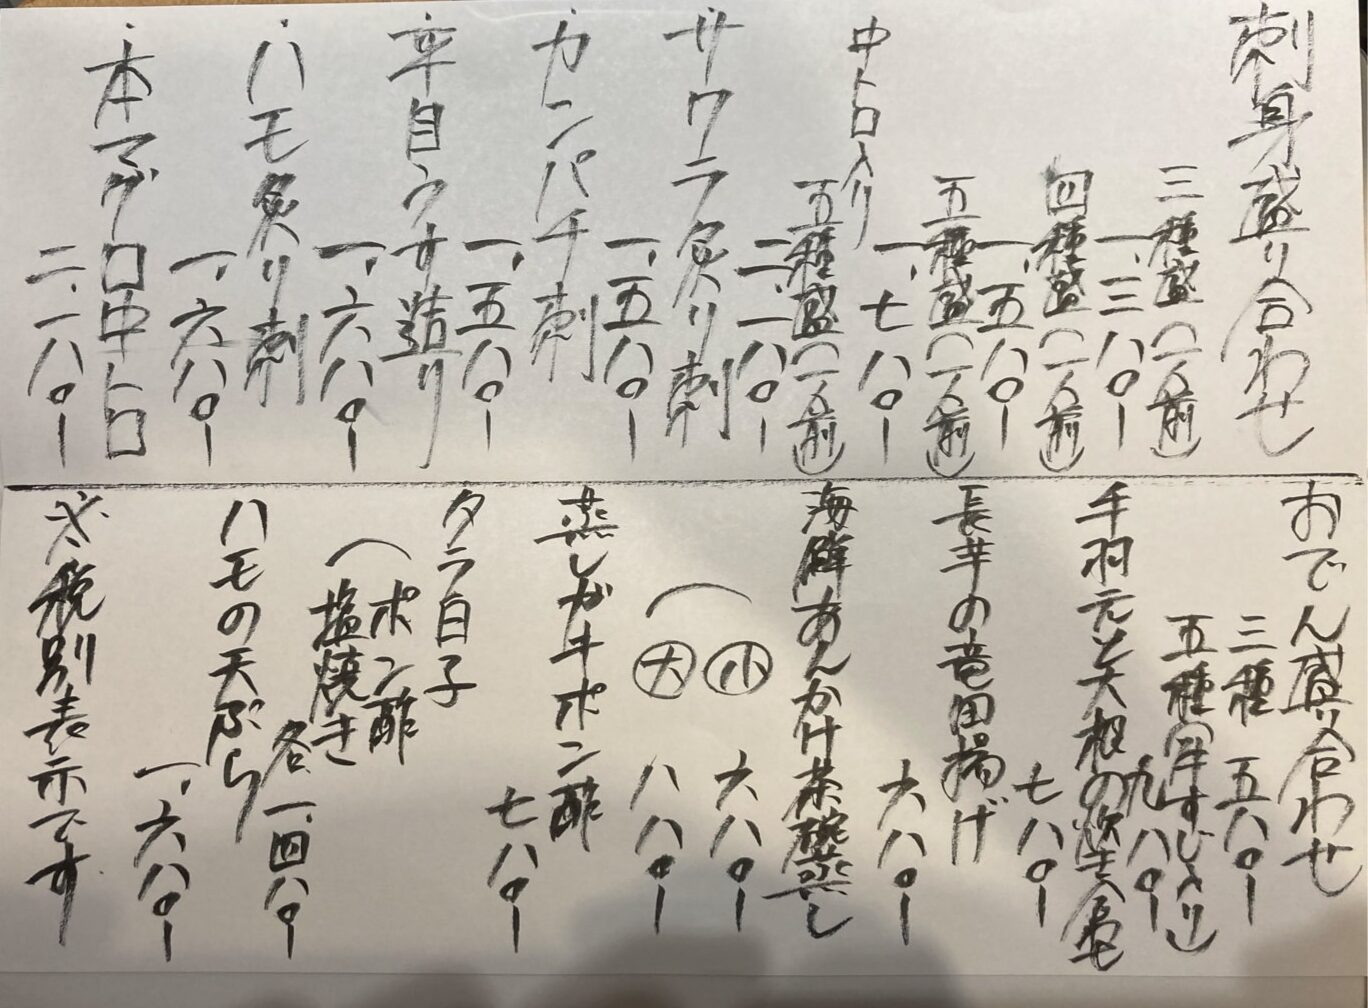 刺身盛り合わせ
三種盛(一人前)
一、三八〇ー
四種盛(一人前)
一、五八〇ー
五種盛(一人前)
一、七八〇ー
中トロ入り
五種盛(一人前)
二、一八〇ー
サワラ炙り刺
一、五八〇ー
カンパチ刺
一、五八〇ー
平目うす造り
一、六八〇ー
・ハモ炙り刺
一、六八〇ー
・本マグロ中トロ
二、一八〇ー
おでん盛り合わせ
三種 五八〇ー
五種(牛すじ入り)
九八〇ー
手羽元と大根の炊き合わせ
七八〇ー
長芋の竜田揚げ
六八〇ー
海鮮あんかけ茶碗蒸し
小 六八〇ー
大 八八〇ー
蒸しガキポン酢
七八〇ー
タラ白子
(ポン酢
塩焼き
各一、四八〇ー
ハモの天ぷら
一、六八〇ー
税別表示です